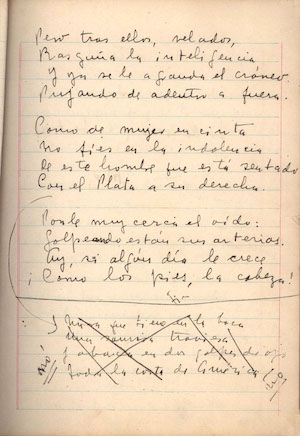 Pero tras ellos, velados,
Rasguña la inteligencia
Y ya se le agranda el cráneo
Pujando de adentro a fuera.
Como de mujer en cinta
No fíes en la indolencia
De este hombre que está sentado
Con el Plata a su derecha.
Ponle muy cerca el oído:
Golpeando están sus arterias.
¡Ay, si algún día le crece
¡Como los pies, la cabeza!
en la boca
Una sonrisa traviesa
Y abarca en dos golpes de ojo
Toda la costa de América